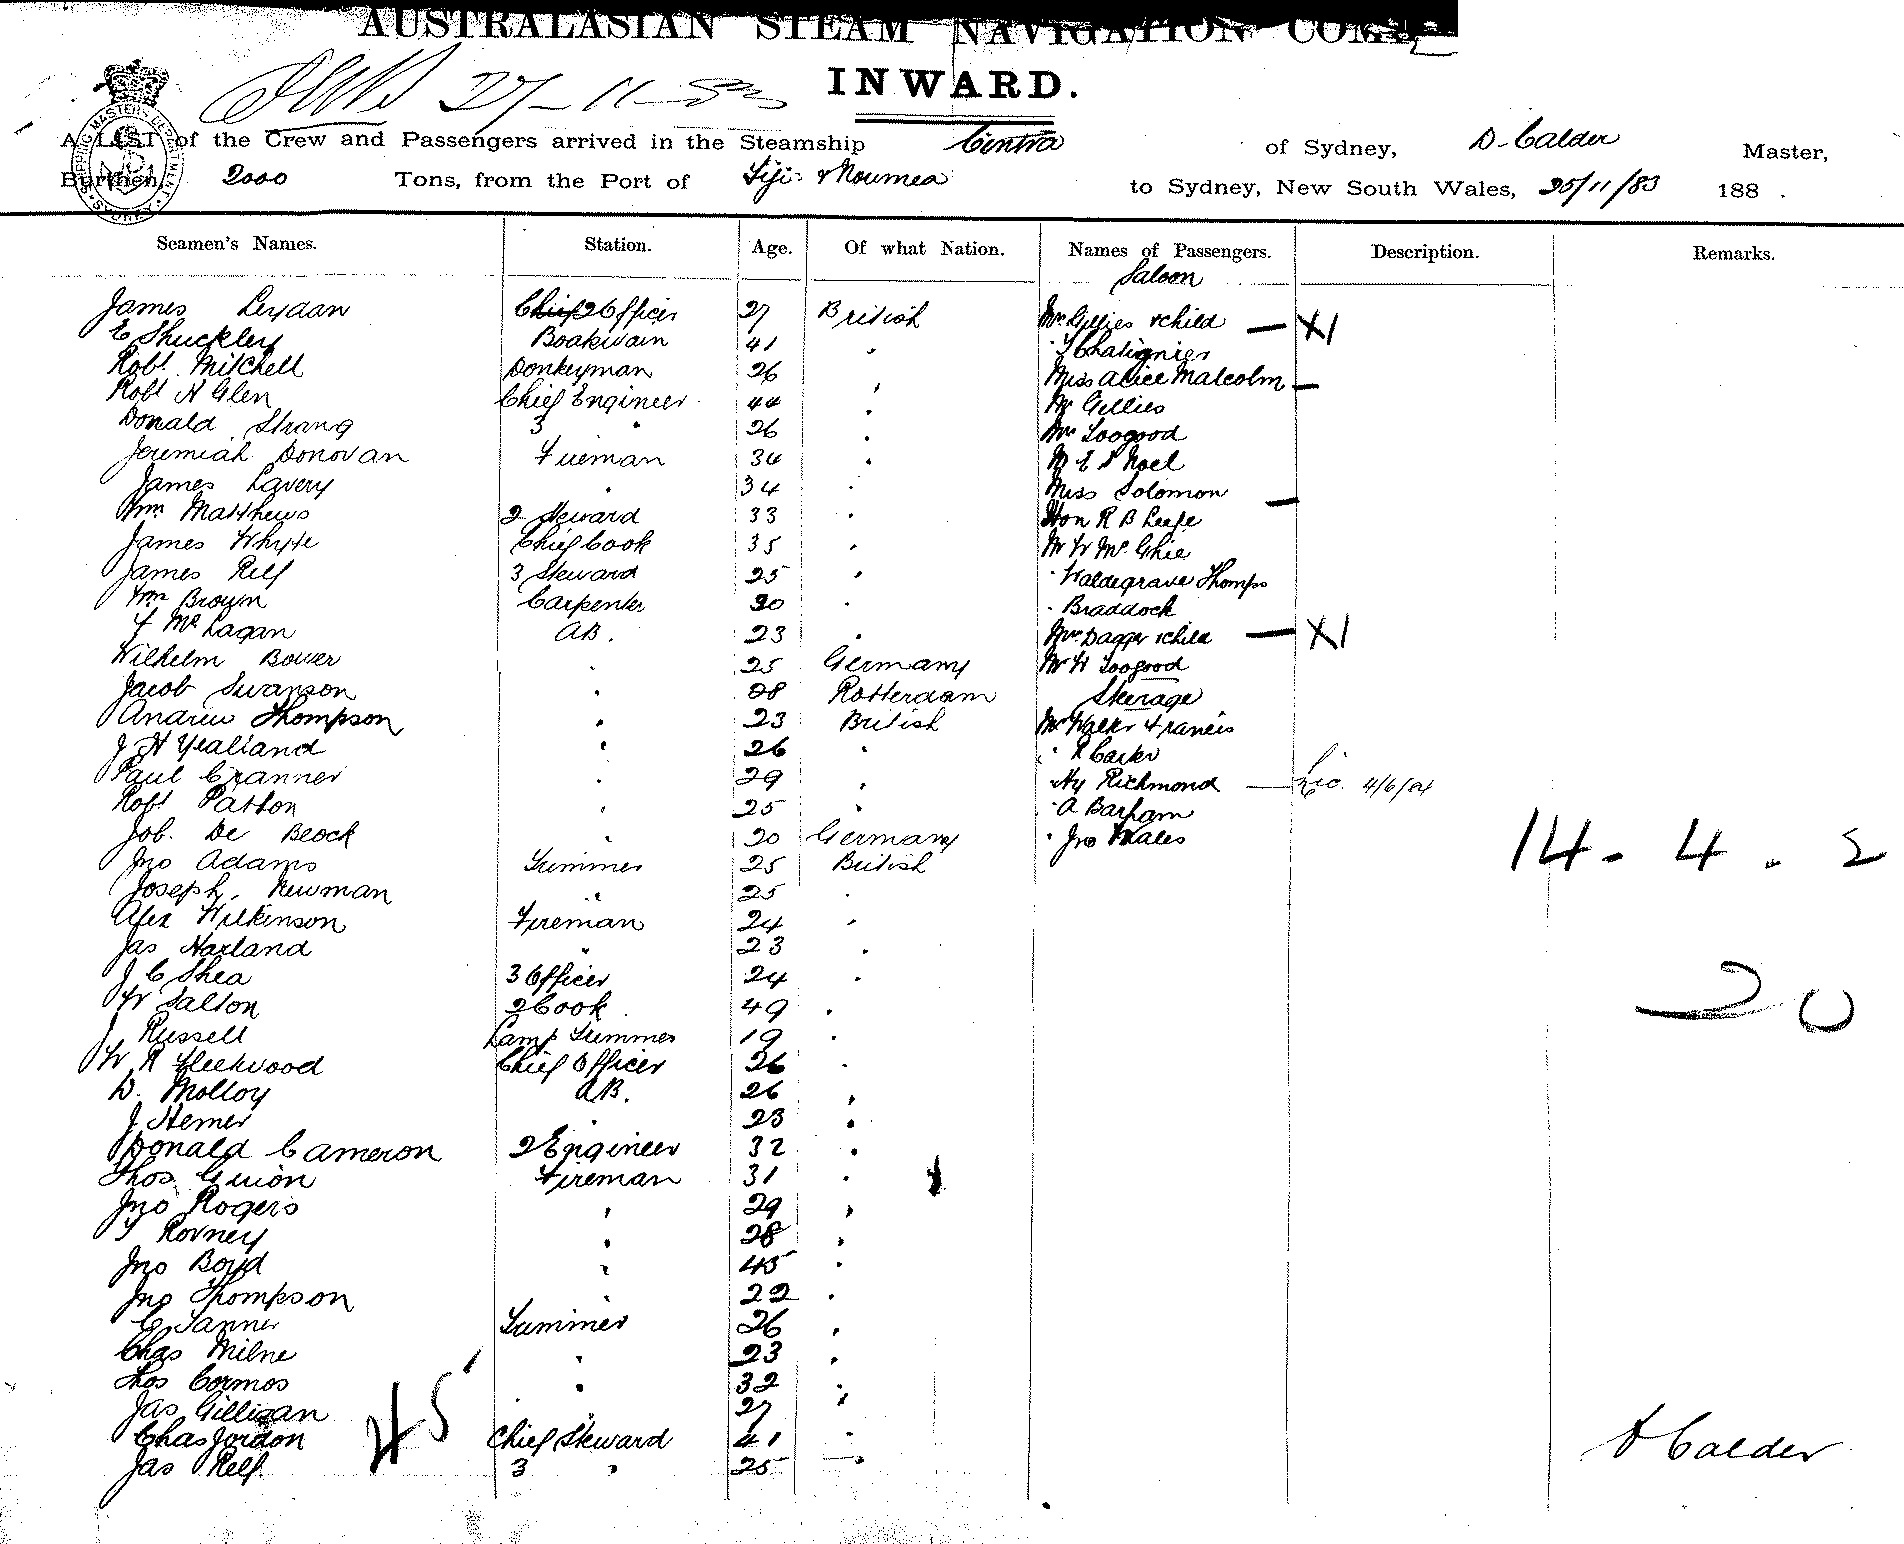 AUSTRALASIAN STEAM NAVIGATION COMP
27-11-83
INWARD.
SHIPPING MASTERS DEPARTMENT SYDNEY
A LIST of the Crew and Passengers arrived in the Steamship Cintra of Sydney, D. Calder Master,
Burthen, 2000 Tons, from the Port of Fiji & Noumea to Sydney, New South Wales, 25/11/83 188 .
Seamen's Names. Station. Age. Of what Nation. Names of Passengers. Description. Remarks.
Saloon
James Leydan Chief 2 Officer 27 British Mrs Gillies & child — X1
E Shuckley Boatswain 41 " " Chatignier
Robt Mitchell Donkeyman 26 " Miss Alice Malcolm —
Robt H Glen Chief Engineer 44 " Mr Gillies
Donald Strang 3 " 26 " Mrs Toogood
Jeremiah Donovan Fireman 34 " M E S Noel
James Lavery " 34 " Miss Solomon —
Wm Matthews 2 Steward 33 " Hon R B Leefe
James Whyte Chief Cook 35 " Mr W McGhie
James Relf 3 Steward 25 " " Waldegrave Thomps
Wm Brown Carpenter 30 " " Braddock
F McLagan AB. 23 " Mrs Dagger & child — X1
Wilhelm Bower " 25 Germany Mr H Toogood
Jacob Swanson " 28 Rotterdam Steerage
Andrew Thompson " 23 British Mr Walter Francis
J H Yealland " 26 " " R Carter
Paul Cranner " 29 " " Hy Richmond — Lic. 4/6/01
Robt Patton " 25 " " A Barham
Job. De Beock " 20 Germany " Jno Wales
14 . 4 . 2
Jno Adams Trimmer 25 British
Joseph Newman " 25 "
Alex Wilkinson Fireman 24 "
Jas Harland " 23 "
J C Shea 3 Officer 24 "
20
W Salton 2 Cook 49 "
J Russell Lamp Trimmer 19 "
W R Fleetwood Chief Officer 26 "
D. Molloy AB. 26 "
J Hemer " 23 "
Donald Cameron 2 Engineer 32 "
Thos Guion Fireman 31 "
Jno Rogers " 29 "
T Rovney " 28 "
Jno Boyd " 45 "
Jno Thompson " 22 "
C Tanner Trimmer 26 "
Chas Milne " 23 "
Thos Cormos " 32 "
Jas Gilligan " 27 "
45
Chas Jordon Chief Steward 41 "
Jas Relf 3 " 25 "
D Calder